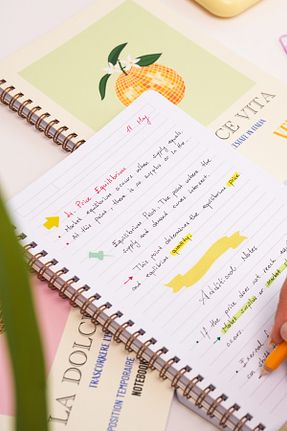 11 May
Price Equilibrium
Market equilibrium occurs when supply equals
At this point, there is no surplus or
Equilibrium Point: The point where the
supply and demand curves intersect.
This point determines the equilibrium price
and equilibrium quantity.
Additional Notes
If the price does not reach
Market surplus or
occurs.
CE VITA
LA DOLC
TRASCORRERE L'E
POSITION TEMPORAIRE
NOTEBOOK